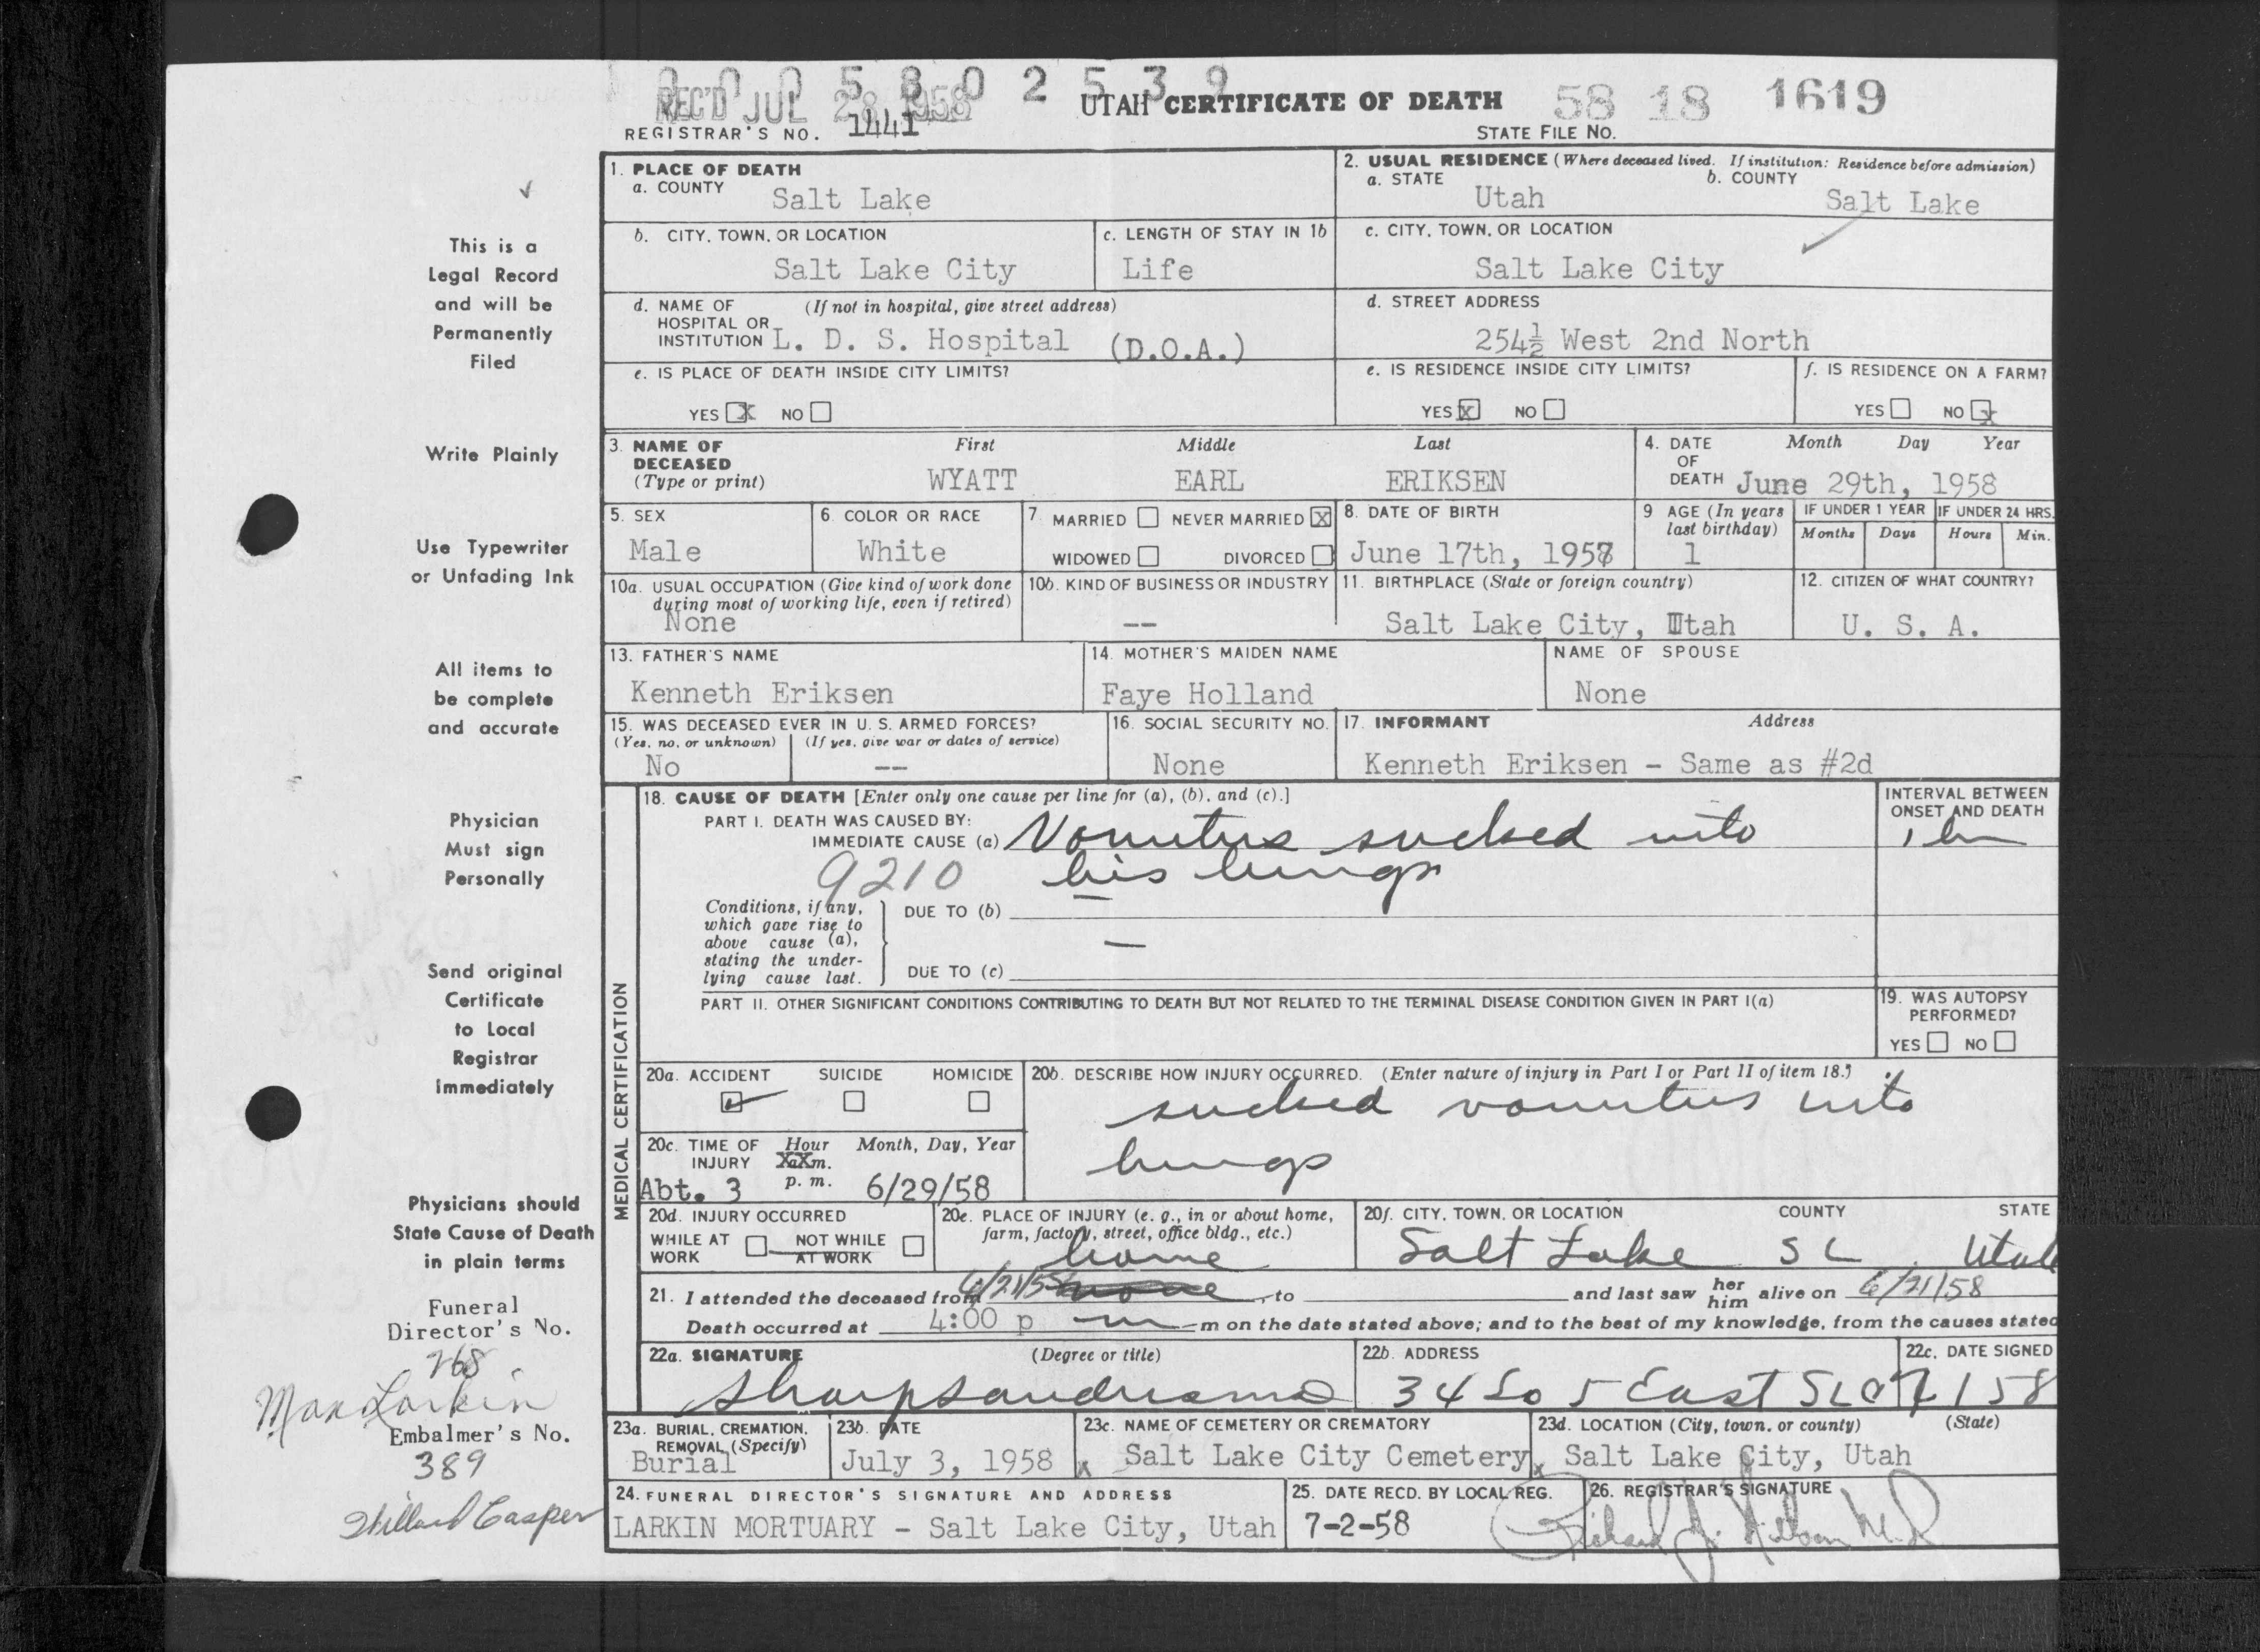 0 0 0 5 8 0 2 5 3 9
REC'D JUL 28 1958
UTAH CERTIFICATE OF DEATH
58 18 1619
REGISTRAR'S NO. 1441
STATE FILE NO.
This is a
Legal Record
and will be
Permanently
Filed
Write Plainly
Use Typewriter
or Unfading Ink
All items to
be complete
and accurate
Physician
Must sign
Personally
Send original
Certificate
to Local
Registrar
immediately
Physicians should
State Cause of Death
in plain terms
Funeral
Director's No.
268
Max Larkin
Embalmer's No.
389
Willard Casper
1. PLACE OF DEATH
a. COUNTY
Salt Lake
2. USUAL RESIDENCE (Where deceased lived. If institution: Residence before admission)
a. STATE
b. COUNTY
Utah
Salt Lake
b. CITY, TOWN, OR LOCATION
Salt Lake City
c. LENGTH OF STAY IN 1b
Life
c. CITY, TOWN, OR LOCATION
Salt Lake City
d. NAME OF (If not in hospital, give street address)
HOSPITAL OR
INSTITUTION L. D. S. Hospital (D.O.A.)
d. STREET ADDRESS
254½ West 2nd North
e. IS PLACE OF DEATH INSIDE CITY LIMITS?
YES X NO
e. IS RESIDENCE INSIDE CITY LIMITS?
YES X NO
f. IS RESIDENCE ON A FARM?
YES NO X
3. NAME OF DECEASED (Type or print)
First Middle Last
WYATT EARL ERIKSEN
4. DATE OF DEATH
Month Day Year
June 29th, 1958
5. SEX
Male
6. COLOR OR RACE
White
7. MARRIED NEVER MARRIED X
WIDOWED DIVORCED
8. DATE OF BIRTH
June 17th, 1957
9 AGE (In years last birthday)
1
IF UNDER 1 YEAR
Months Days
IF UNDER 24 HRS.
Hours Min.
10a. USUAL OCCUPATION (Give kind of work done
during most of working life, even if retired)
None
10b. KIND OF BUSINESS OR INDUSTRY
--
11. BIRTHPLACE (State or foreign country)
Salt Lake City, Utah
12. CITIZEN OF WHAT COUNTRY?
U. S. A.
13. FATHER'S NAME
Kenneth Eriksen
14. MOTHER'S MAIDEN NAME
Faye Holland
NAME OF SPOUSE
None
15. WAS DECEASED EVER IN U. S. ARMED FORCES?
(Yes, no, or unknown) (If yes, give war or dates of service)
No --
16. SOCIAL SECURITY NO.
None
17. INFORMANT Address
Kenneth Eriksen - Same as #2d
MEDICAL CERTIFICATION
18. CAUSE OF DEATH [Enter only one cause per line for (a), (b), and (c).]
PART I. DEATH WAS CAUSED BY:
IMMEDIATE CAUSE (a) Vomitus sucked into
9210 his lungs
INTERVAL BETWEEN
ONSET AND DEATH
1 hr
Conditions, if any,
which gave rise to
above cause (a),
stating the under-
lying cause last.
DUE TO (b) —
DUE TO (c) —
PART II. OTHER SIGNIFICANT CONDITIONS CONTRIBUTING TO DEATH BUT NOT RELATED TO THE TERMINAL DISEASE CONDITION GIVEN IN PART I(a)
19. WAS AUTOPSY
PERFORMED?
YES NO
20a. ACCIDENT SUICIDE HOMICIDE
20b. DESCRIBE HOW INJURY OCCURRED. (Enter nature of injury in Part I or Part II of item 18.)
sucked vomitus into
lungs
20c. TIME OF INJURY
Hour Month, Day, Year
a. m.
p. m.
Abt. 3 6/29/58
20d. INJURY OCCURRED
WHILE AT WORK
NOT WHILE AT WORK
20e. PLACE OF INJURY (e. g., in or about home,
farm, factory, street, office bldg., etc.)
home
20f. CITY, TOWN, OR LOCATION COUNTY STATE
Salt Lake SL Utah
21. I attended the deceased from 6/21/58 none , to and last saw her him alive on 6/21/58
Death occurred at 4:00 p m m on the date stated above; and to the best of my knowledge, from the causes stated
22a. SIGNATURE (Degree or title)
22b. ADDRESS
34 So 5 East SLC
22c. DATE SIGNED
7/1/58
23a. BURIAL, CREMATION,
REMOVAL (Specify)
Burial
23b. DATE
July 3, 1958
23c. NAME OF CEMETERY OR CREMATORY
x Salt Lake City Cemetery
23d. LOCATION (City, town, or county) (State)
x Salt Lake City, Utah
24. FUNERAL DIRECTOR'S SIGNATURE AND ADDRESS
LARKIN MORTUARY - Salt Lake City, Utah
25. DATE RECD. BY LOCAL REG.
7-2-58
26. REGISTRAR'S SIGNATURE
Richard J. Nelson M.D.